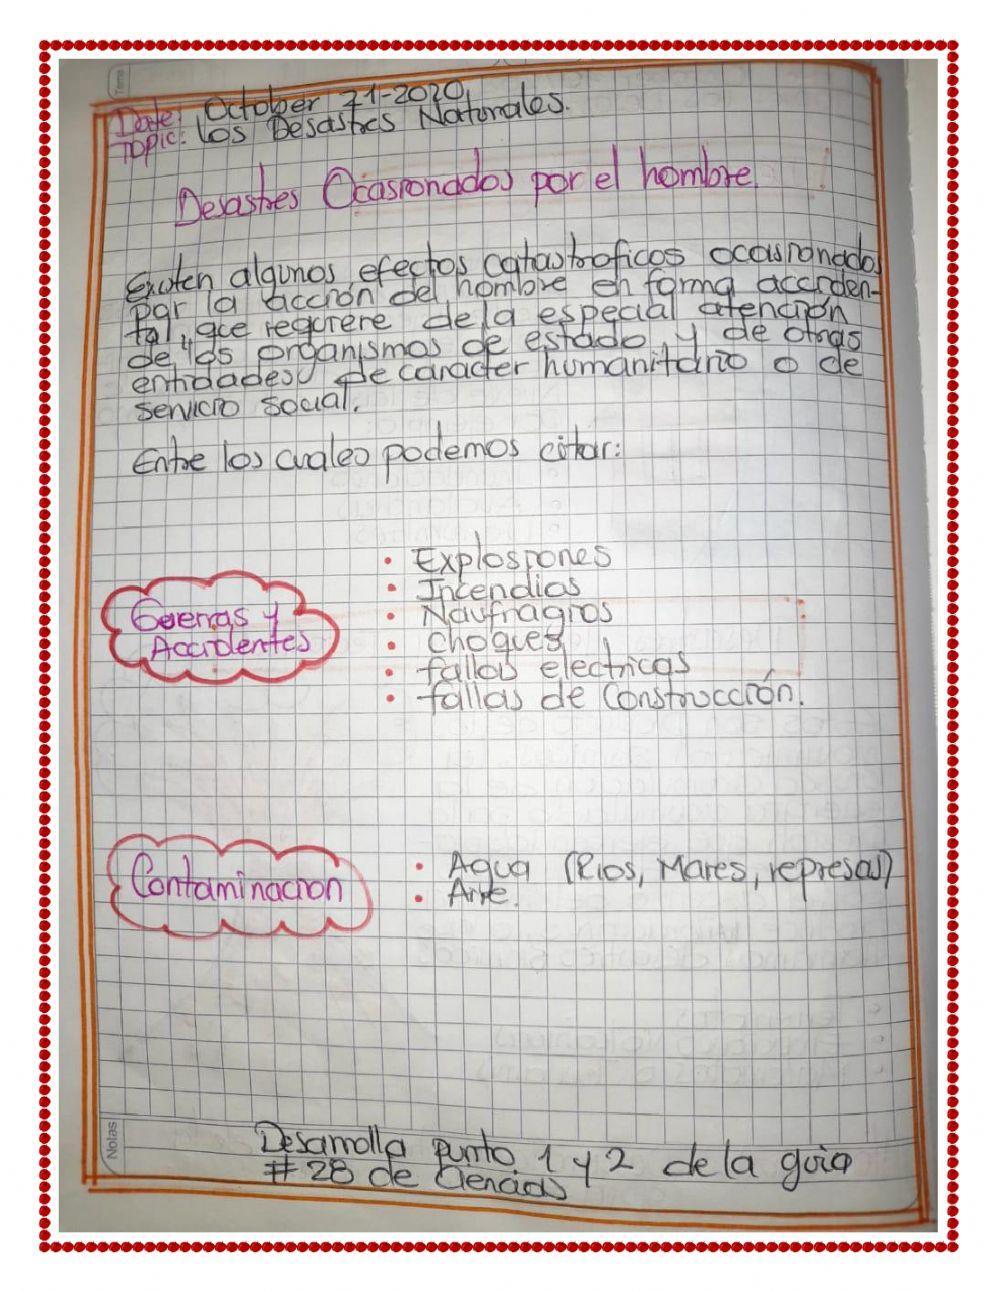 Tema
Date: October 21-2020
Topic: Los Desastres Naturales.
Desastres Ocasionados por el hombre.
Existen algunos efectos catastroficos ocasionados
por la acción del hombre en forma acciden-
tal, que requiere de la especial atención
de los organismos de estado y de otras
entidades de caracter humanitario o de
servicio social.
Entre los cuales podemos citar:
Guerras y
Accidentes
• Explosiones
• Incendios
• Naufragios
• choques
• fallas electricas
• fallas de Construcción.
Contaminacion
• Agua (Rios, Mares, represas)
• Aire.
Notas
Desarrolla punto 1 y 2 de la guia
# 28 de Ciencias